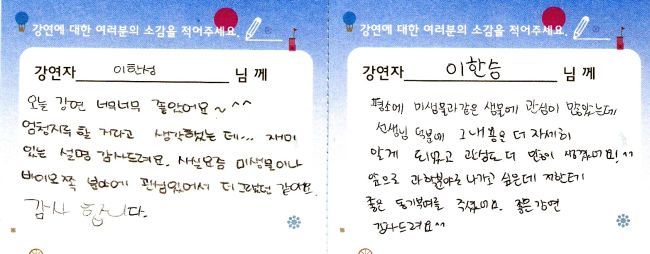 강연에 대한 여러분의 소감을 적어주세요.
강연자 이한성 님께
오늘 강연 너무너무 좋았어요~^^
엄청지루할 거라고 생각했는데... 재미
있는 설명 감사드려요. 사실요즘 미생물이나
바이오쪽 분야에 관심있어서 더 그랬던 같아요.
감사 합니다.
강연에 대한 여러분의 소감을 적어주세요.
강연자 이한승 님께
평소에 미생물과같은 생물에 관심이 많았는데
선생님 덕분에 그 내용은 더 자세히
알게 되었고 관심도 더 많이 생겼어요!^^
앞으로 과학분야로 나가고 싶은데 저한테
좋은 동기부여를 주셨어요. 좋은강연
감사드려요^^